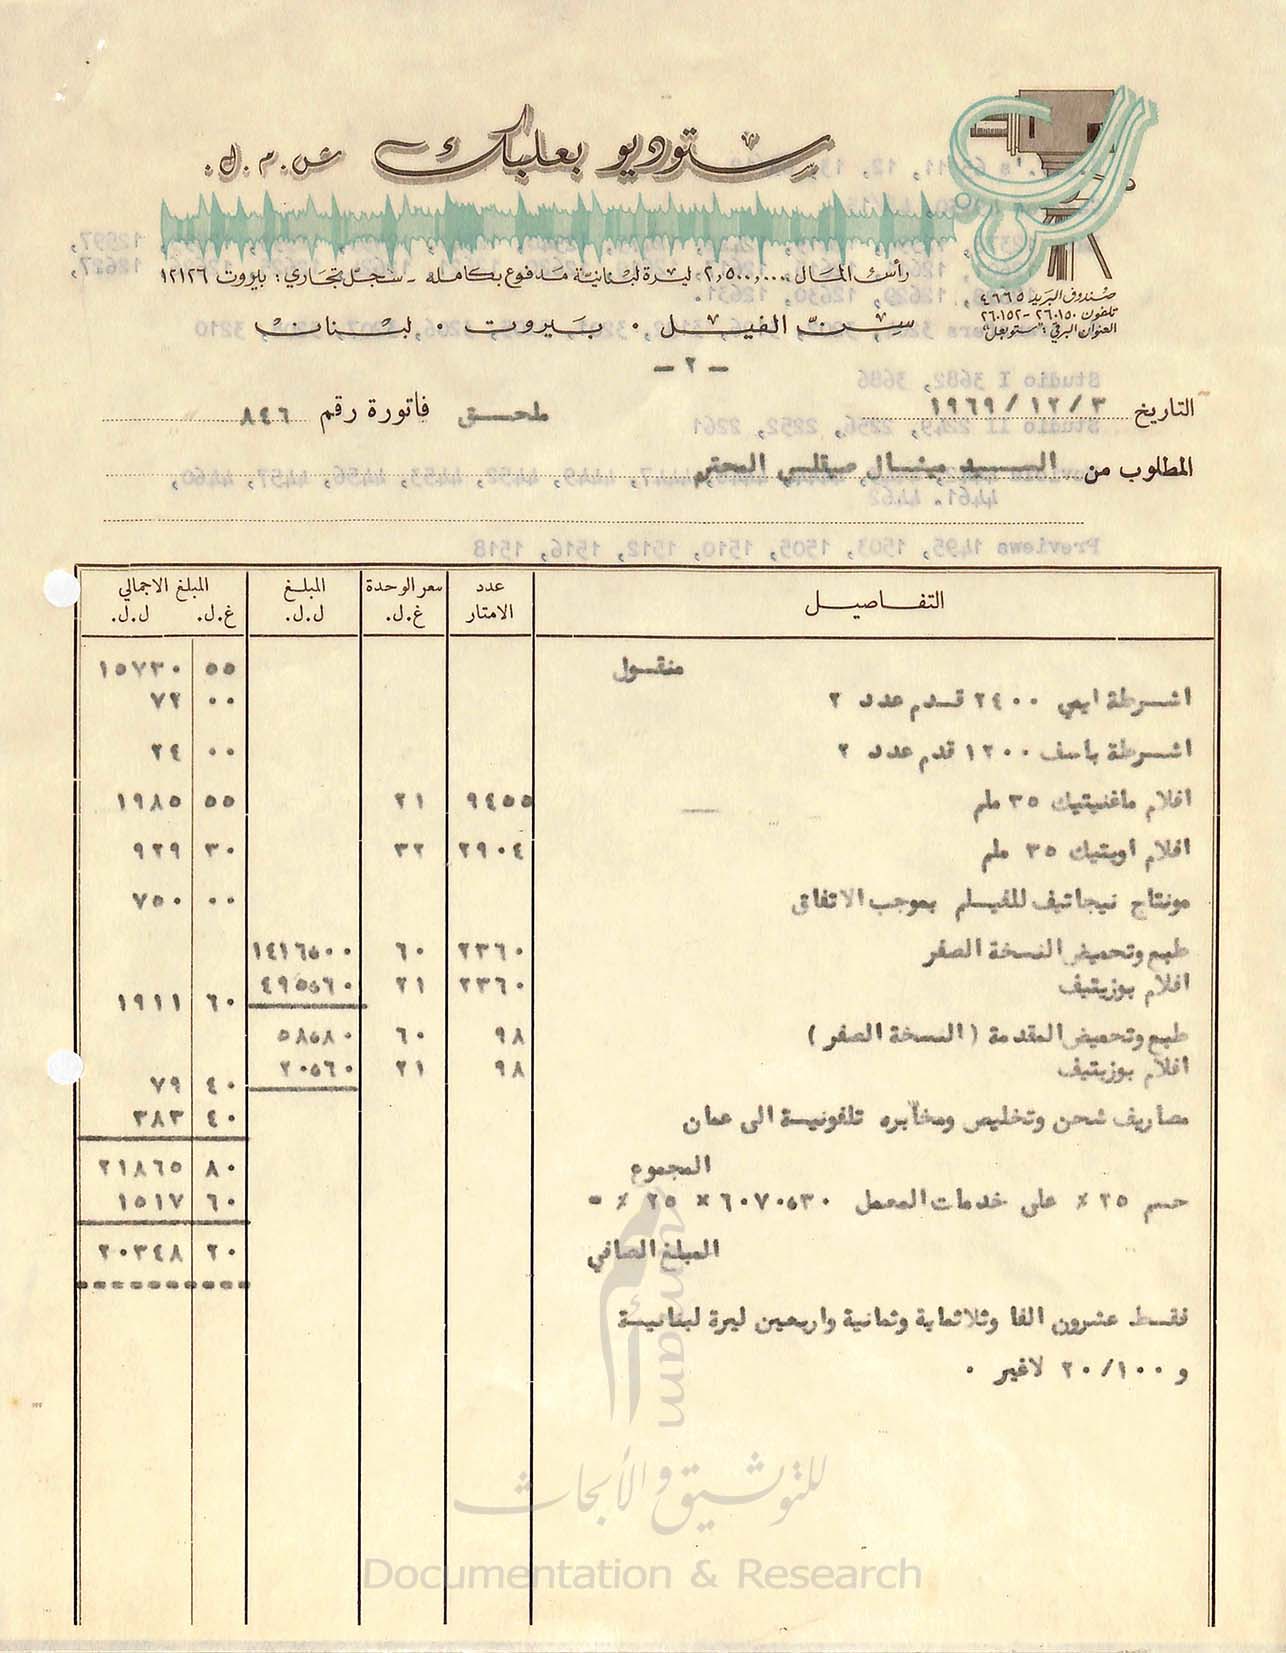 ستوديو بعلبك ش.م.ل.
رأس المال ٢,٥٠٠,٠٠٠ ليرة لبنانية مدفوع بكامله - سجل تجاري: بيروت ١٢١٢٦
صندوق البريد ٤٦٦٥
تلفون ٢٦٠١٥٠ - ٢٦٠١٥٢
العنوان البرقي: "ستوبعل"
سن الفيل · بيروت · لبنان
- ٢ -
التاريخ ٣ / ١٢ / ١٩٦٩ ملحق فاتورة رقم ٨٤٦
المطلوب من السيد ميشال صيقلي المحترم
التفاصيل | عدد الامتار | سعر الوحدة غ.ل. | المبلغ ل.ل. | المبلغ الاجمالي غ.ل. ل.ل.
منقول ٥٥ ١٥٧٣٠
اشرطة ايمي ٢٤٠٠ قدم عدد ٢ ٠٠ ٧٢
اشرطة باسف ١٢٠٠ قدم عدد ٢ ٠٠ ٢٤
افلام ماغنيتيك ٣٥ ملم ٩٤٥٥ ٢١ ٥٥ ١٩٨٥
افلام اوبتيك ٣٥ ملم ٢٩٠٤ ٣٢ ٣٠ ٩٢٩
مونتاج نيجاتيف للفيلم بموجب الاتفاق ٠٠ ٧٥٠
طبع وتحميض النسخة الصفر ٢٣٦٠ ٦٠ ١٤١٦،٠٠
افلام بوزيتيف ٢٣٦٠ ٢١ ٤٩٥،٦٠ ٦٠ ١٩١١
طبع وتحميض المقدمة ( النسخة الصفر ) ٩٨ ٦٠ ٥٨،٨٠
افلام بوزيتيف ٩٨ ٢١ ٢٠،٦٠ ٤٠ ٧٩
مصاريف شحن وتخليص ومخابره تلفونية الى عمان ٤٠ ٣٨٣
المجموع ٨٠ ٢١٨٦٥
حسم ٢٥ ٪ على خدمات المعمل ٦٠٧٠،٣٠ × ٢٥ ٪ = ٦٠ ١٥١٧
المبلغ الصافي ٢٠ ٢٠٣٤٨
فقط عشرون الفا وثلاثماية وثمانية واربعين ليرة لبنانية
و ٢٠/١٠٠ لاغير .
umam
للتوثيق و الأبحاث
Documentation & Research